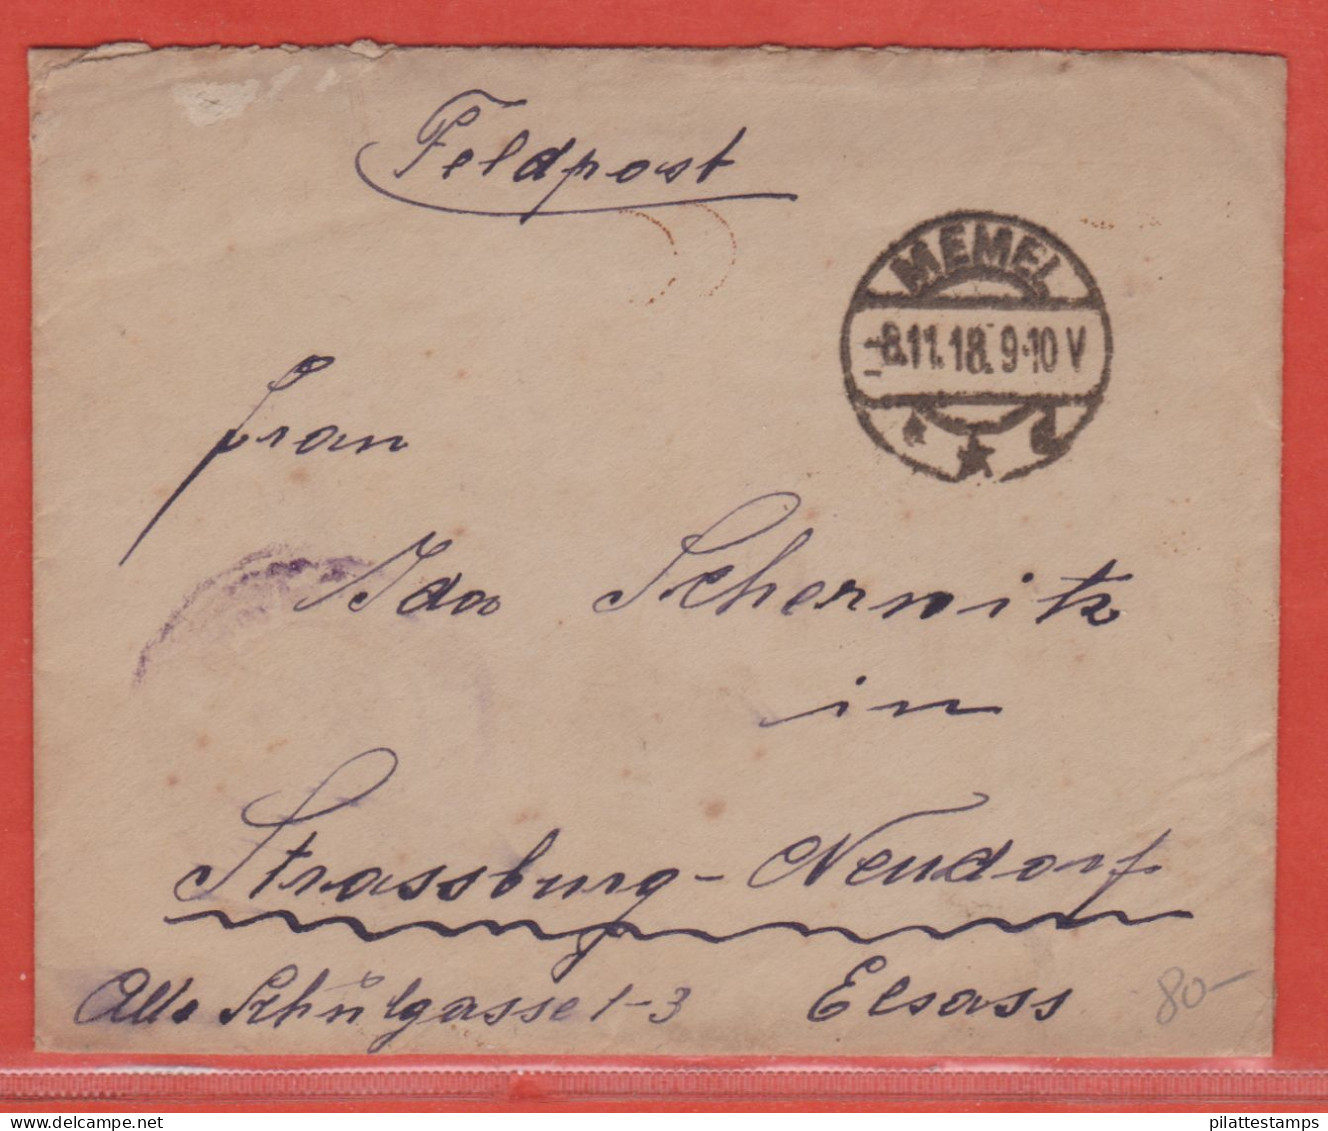 Feldpost
MEMEL
-8.11.18. 9-10 V
Frau
Ida Schernitz
in
Strassburg-Neudorf
Alte Schulgasse 1-3 Elsass
80-
pilattestamps